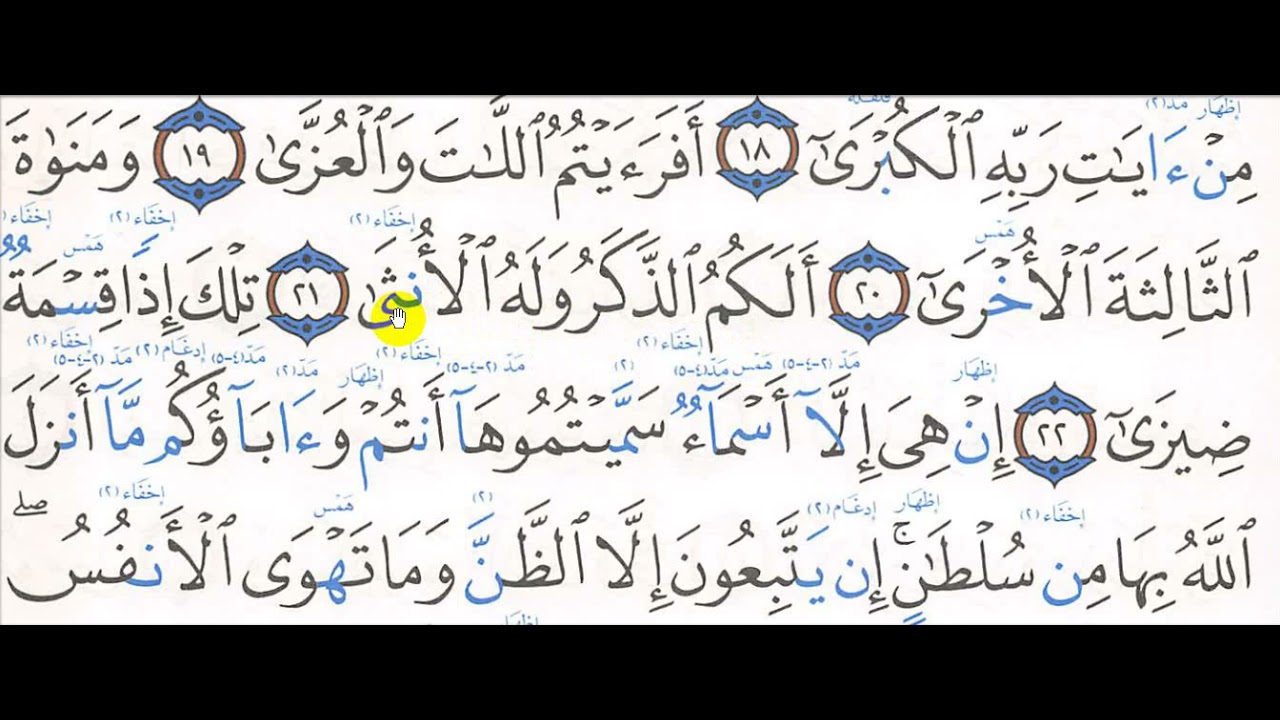 إظهار مدّ(٢) قلقلة
مِنْ ءَايَٰتِ رَبِّهِ ٱلْكُبْرَىٰٓ ١٨ أَفَرَءَيْتُمُ ٱللَّٰتَ وَٱلْعُزَّىٰ ١٩ وَمَنَوٰةَ
همس إخفاء(٢) إخفاء(٢) همس إخفاء(٢)
ٱلثَّالِثَةَ ٱلْأُخْرَىٰٓ ٢٠ أَلَكُمُ ٱلذَّكَرُ وَلَهُ ٱلْأُنثَىٰ ٢١ تِلْكَ إِذًا قِسْمَةٌ
إظهار مدّ(٢-٤-٥) همس مدّ(٤-٥) (٢) إخفاء(٢) مدّ(٢-٤-٥) إخفاء(٢) إظهار مدّ(٢) مدّ(٤-٥) إدغام(٢) مدّ(٢-٤-٥) إخفاء(٢)
ضِيزَىٰٓ ٢٢ إِنْ هِىَ إِلَّآ أَسْمَآءٌ سَمَّيْتُمُوهَآ أَنتُمْ وَءَابَآؤُكُم مَّآ أَنزَلَ
إخفاء(٢) إظهار إدغام(٢) (٢) همس إخفاء(٢)
ٱللَّهُ بِهَا مِن سُلْطَٰنٍ ۚ إِن يَتَّبِعُونَ إِلَّا ٱلظَّنَّ وَمَا تَهْوَى ٱلْأَنفُسُ ۖ